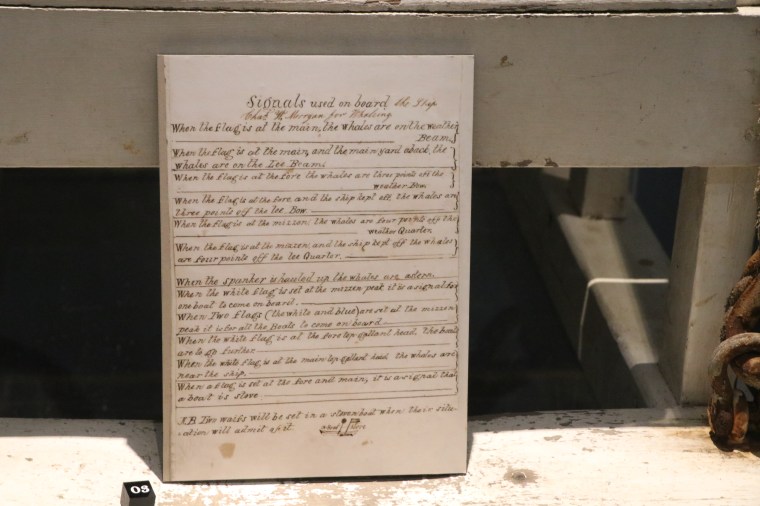 Signals used on board the Ship
Chas W. Morgan for Whaling
When the flag is at the main, the whales are on the weather
Beam.
When the flag is at the main, and the main yard aback, the
whales are on the Lee Beam.
When the flag is at the fore the whales are three points off the
weather Bow
When the flag is at the fore, and the ship kept off, the whales are
three points off the lee Bow
When the flag is at the mizzen, the whales are four points off the
weather Quarter.
When the flag is at the mizzen, and the ship kept off the whales
are four points off the lee Quarter.
When the spanker is hauled up the whales are astern.
When the white flag is set at the mizzen peak it is a signal for
one boat to come on board.
When Two flags (the white and blue) are set at the mizzen
peak it is for all the Boats to come on board
When the white flag is at the fore top gallant head. The boats
are to go further.
When the white flag is at the main top gallant head the whales are
near the ship.
When a flag is set at the fore and main, it is a signal that
a boat is stove
N.B. Two waifs will be set in a stoven boat when their situ-
-ation will admit of it.
03